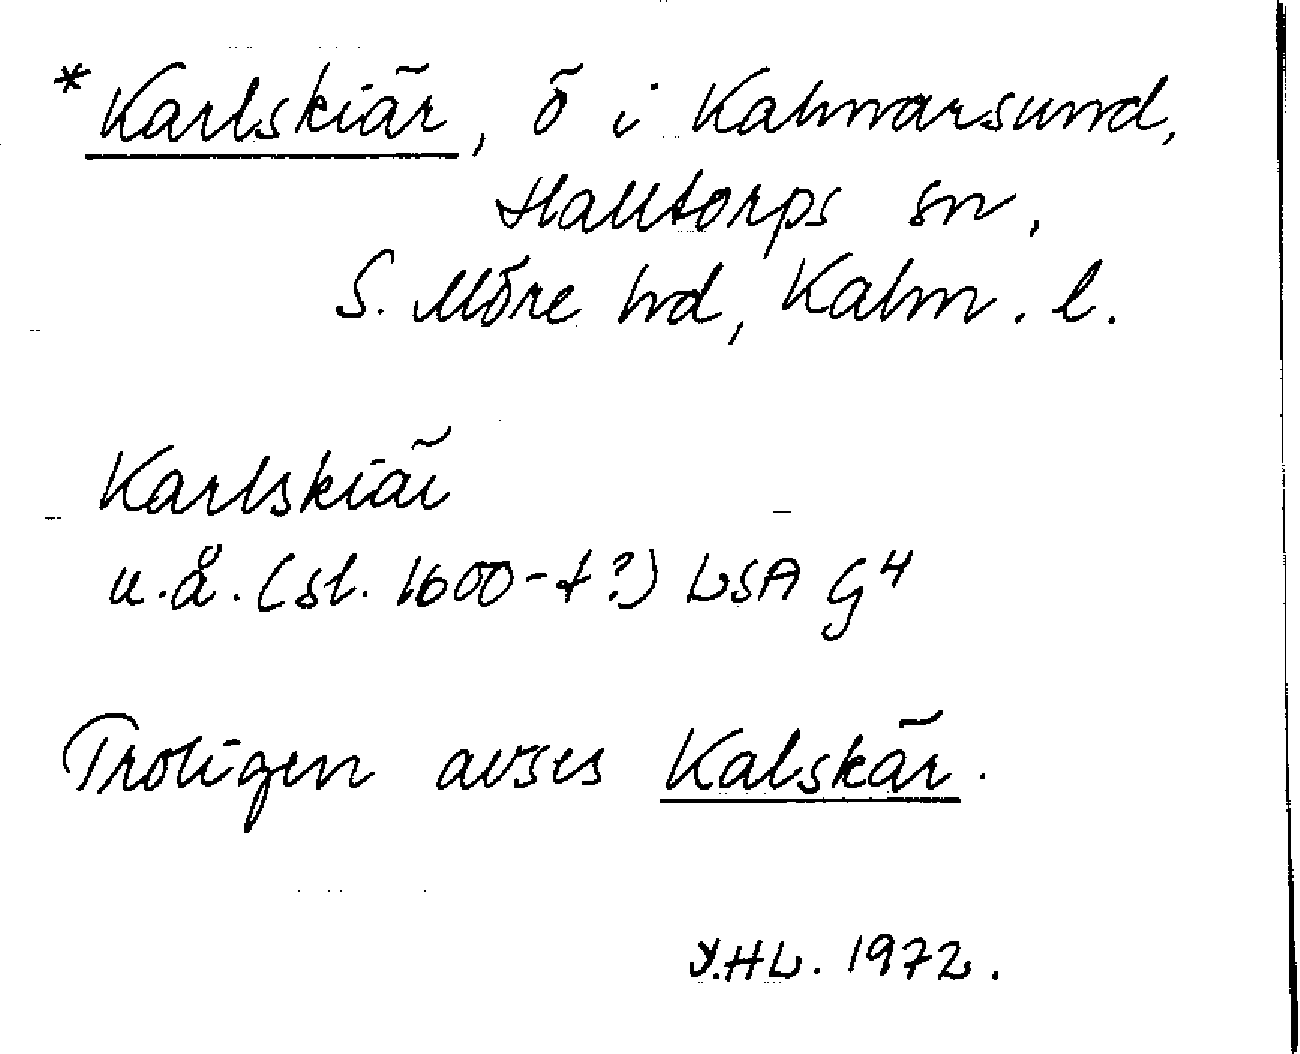 *Karlskiär, ö i Kalmarsund,
Halltorps sn,
S. Möre hd, Kalm. l.
Karlskiär
u.å. (sl. 1600-t?) LSA G4
Troligen avses Kalskär.
Y.HL. 1972.